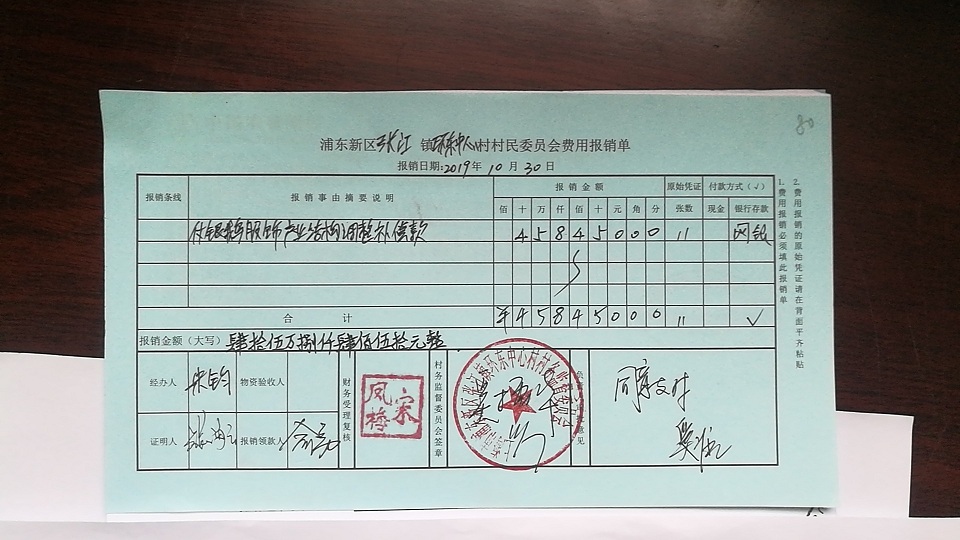 80
浦东新区张江镇环东中心村村民委员会费用报销单
报销日期:2019年10月30日
报销条线 报销事由摘要说明 报销金额 原始凭证 付款方式(√)
佰 十 万 仟 佰 十 元 角 分 张数 现金 银行存款
付 服饰产业结构调整补偿款 4 5 8 4 5 0 0 0 11 网银
合计 ¥ 4 5 8 4 5 0 0 0 11 √
报销金额(大写) 肆拾伍万捌仟肆佰伍拾元整
经办人 朱钧 物资验收人
证明人 报销领款人
财务受理复核
宋凤梅
村务监督委员会签章
张江镇环东中心村村务监督委员会
意见
同意支付
1.费用报销必须填此报销单
2.费用报销的原始凭证请在背面平齐粘贴